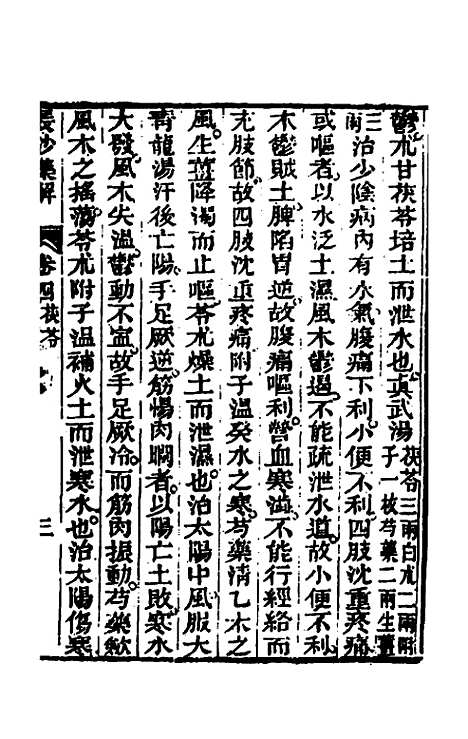 鬱朮甘茯苓培土而泄水也真武湯茯苓三兩白朮二兩附子一枚芍藥二兩生薑
三兩治少陰病內有水氣腹痛下利小便不利四肢沈重疼痛
或嘔者以水泛土濕風木鬱遏不能疏泄水道故小便不利
木鬱賊土脾陷胃逆故腹痛嘔利營血寒澀不能行經絡而
充肢節故四肢沈重疼痛附子溫癸水之寒芍藥清乙木之
風生薑降濁而止嘔苓朮燥土而泄濕也治太陽中風服大
青龍湯汗後亡陽手足厥逆筋惕肉瞤者以陽亡土敗寒水
大發風木失溫鬱動不寧故手足厥冷而筋肉振動芍藥斂
風木之搖蕩苓朮附子溫補火土而泄寒水也治太陽傷寒
長沙藥解 卷四茯苓 三